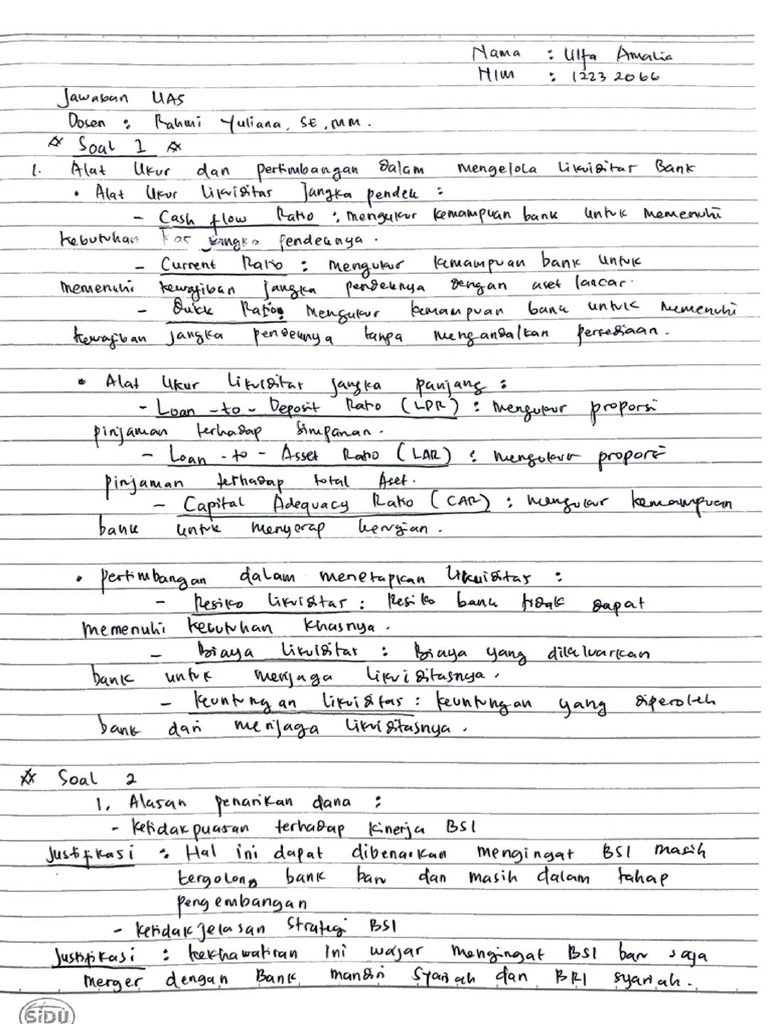 Nama : Ulfa Amalia
NIM : 1223 2066
Jawaban UAS
Dosen : Rahmi Yuliana, SE, MM.
☆ Soal 1 ☆
1. Alat Ukur dan pertimbangan dalam mengelola likuiditas Bank
• Alat Ukur likuiditas Jangka pendek :
- Cash flow Ratio : mengukur kemampuan bank untuk memenuhi
kebutuhan kas jangka pendeknya.
- Current Ratio : mengukur kemampuan bank untuk
memenuhi kewajiban jangka pendeknya dengan aset lancar.
- Quick Ratio: Mengukur kemampuan bank untuk memenuhi
kewajiban jangka pendeknya tanpa mengandalkan persediaan.
• Alat Ukur likuiditas jangka panjang :
- Loan-to-Deposit Ratio (LDR) : mengukur proporsi
pinjaman terhadap simpanan.
- Loan-to-Asset Ratio (LAR) : mengukur proporsi
pinjaman terhadap total Aset.
- Capital Adequacy Ratio (CAR) : mengukur kemampuan
bank untuk menyerap kerugian.
• pertimbangan dalam menetapkan likuiditas :
- Resiko likuiditas : Resiko bank tidak dapat
memenuhi kebutuhan khasnya.
- Biaya likuiditas : biaya yang dikeluarkan
bank untuk menjaga likuiditasnya.
- keuntungan likuiditas : keuntungan yang diperoleh
bank dari menjaga likuiditasnya.
☆ Soal 2
1. Alasan penarikan dana :
- ketidakpuasan terhadap kinerja BSI
Justifikasi : Hal ini dapat dibenarkan mengingat BSI masih
tergolong bank baru dan masih dalam tahap
pengembangan
- ketidakjelasan strategi BSI
Justifikasi : kekhawatiran ini wajar mengingat BSI baru saja
merger dengan Bank mandiri syariah dan BRI syariah.
SiDU